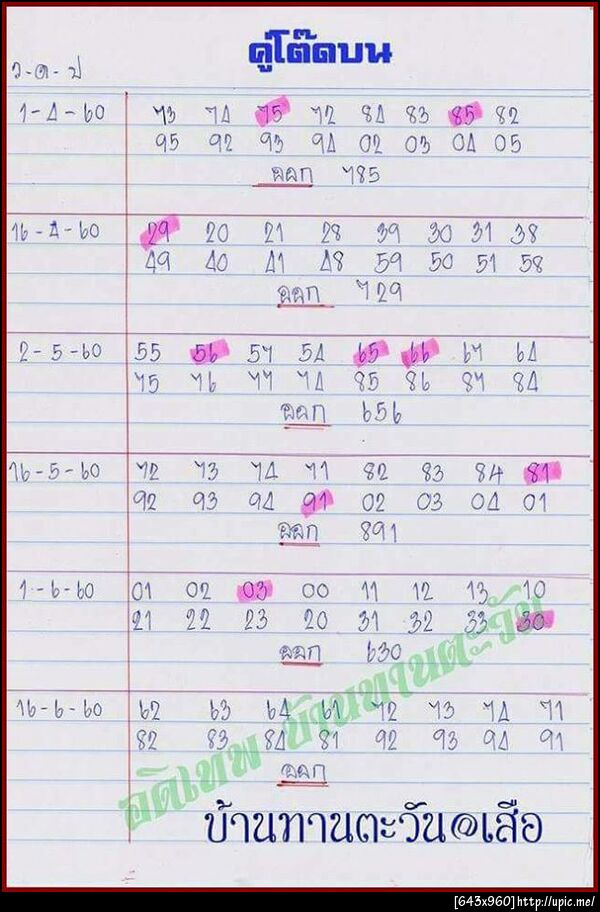 คู่โต๊ดบน
ว-ด-ป
1-4-60 73 74 75 72 84 83 85 82
95 92 93 94 02 03 04 05
ออก 785
16-4-60 29 20 21 28 39 30 31 38
49 40 41 48 59 50 51 58
ออก 729
2-5-60 55 56 57 54 65 66 67 64
75 76 77 74 85 86 87 84
ออก 656
16-5-60 72 73 74 71 82 83 84 81
92 93 94 91 02 03 04 01
ออก 891
1-6-60 01 02 03 00 11 12 13 10
21 22 23 20 31 32 33 30
ออก 630
16-6-60 62 63 64 61 72 73 74 71
82 83 84 81 92 93 94 91
ออก
อดิเทพ บ้านทานตะวัน
บ้านทานตะวัน@เสือ
[643x960]http://upic.me/